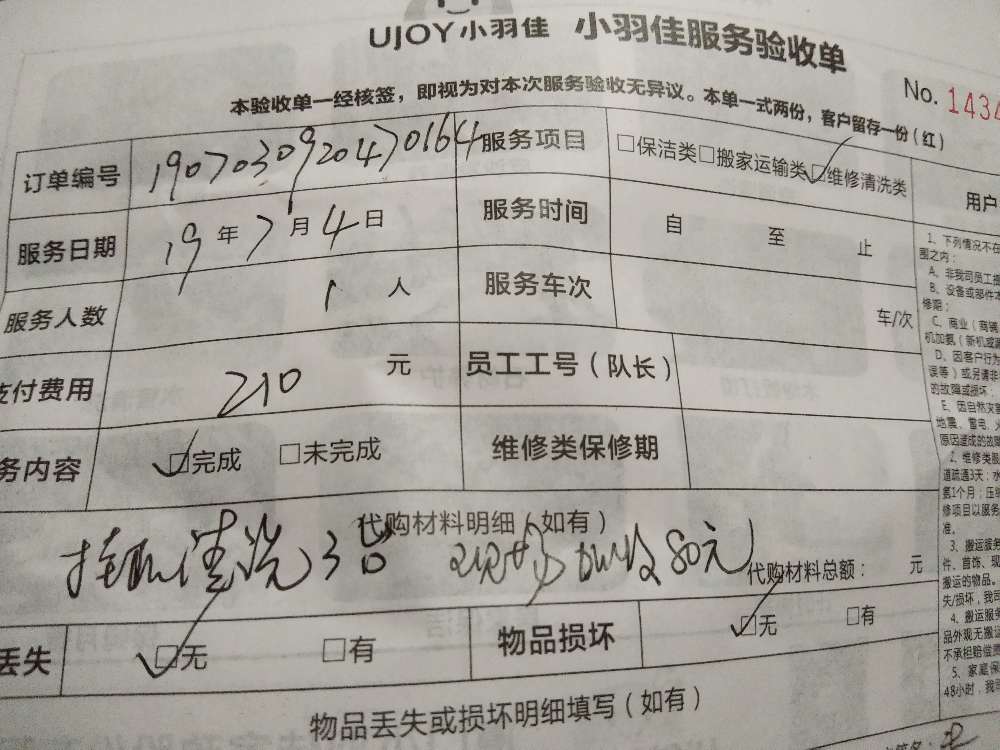 UJOY小羽佳 小羽佳服务验收单
本验收单一经核签，即视为对本次服务验收无异议。本单一式两份，客户留存一份（红）
No. 1434
订单编号 190703092047 0164 服务项目 □保洁类□搬家运输类□维修清洗类
服务日期 19年7月4日 服务时间 自 至 止
服务人数 1人 服务车次 车/次
支付费用 210 元 员工工号（队长）
务内容 □完成 □未完成 维修类保修期
代购材料明细（如有）
挂机清洗3台 现场加收80元 代购材料总额： 元
丢失 □无 □有 物品损坏 □无 □有
物品丢失或损坏明细填写（如有）
用户
1、下列情况不在
围之内：
A、非我司员工
B、设备或部件
修期；
C、商业（商铺
机加氨（新机或
D、因客户行为
误等）或另请非
的故障或损坏；
E、因自然灾
地震、蓄电、火
原因造成的故
2、维修类服
道疏通3天；水
氨1个月；压
修项目以服务
准。
3、搬运服务
件、首饰、现
搬运的物品。
失/损坏，我司
4、搬运服务
品外观无搬运
不承担赔偿责
5、家庭保
48小时，我司